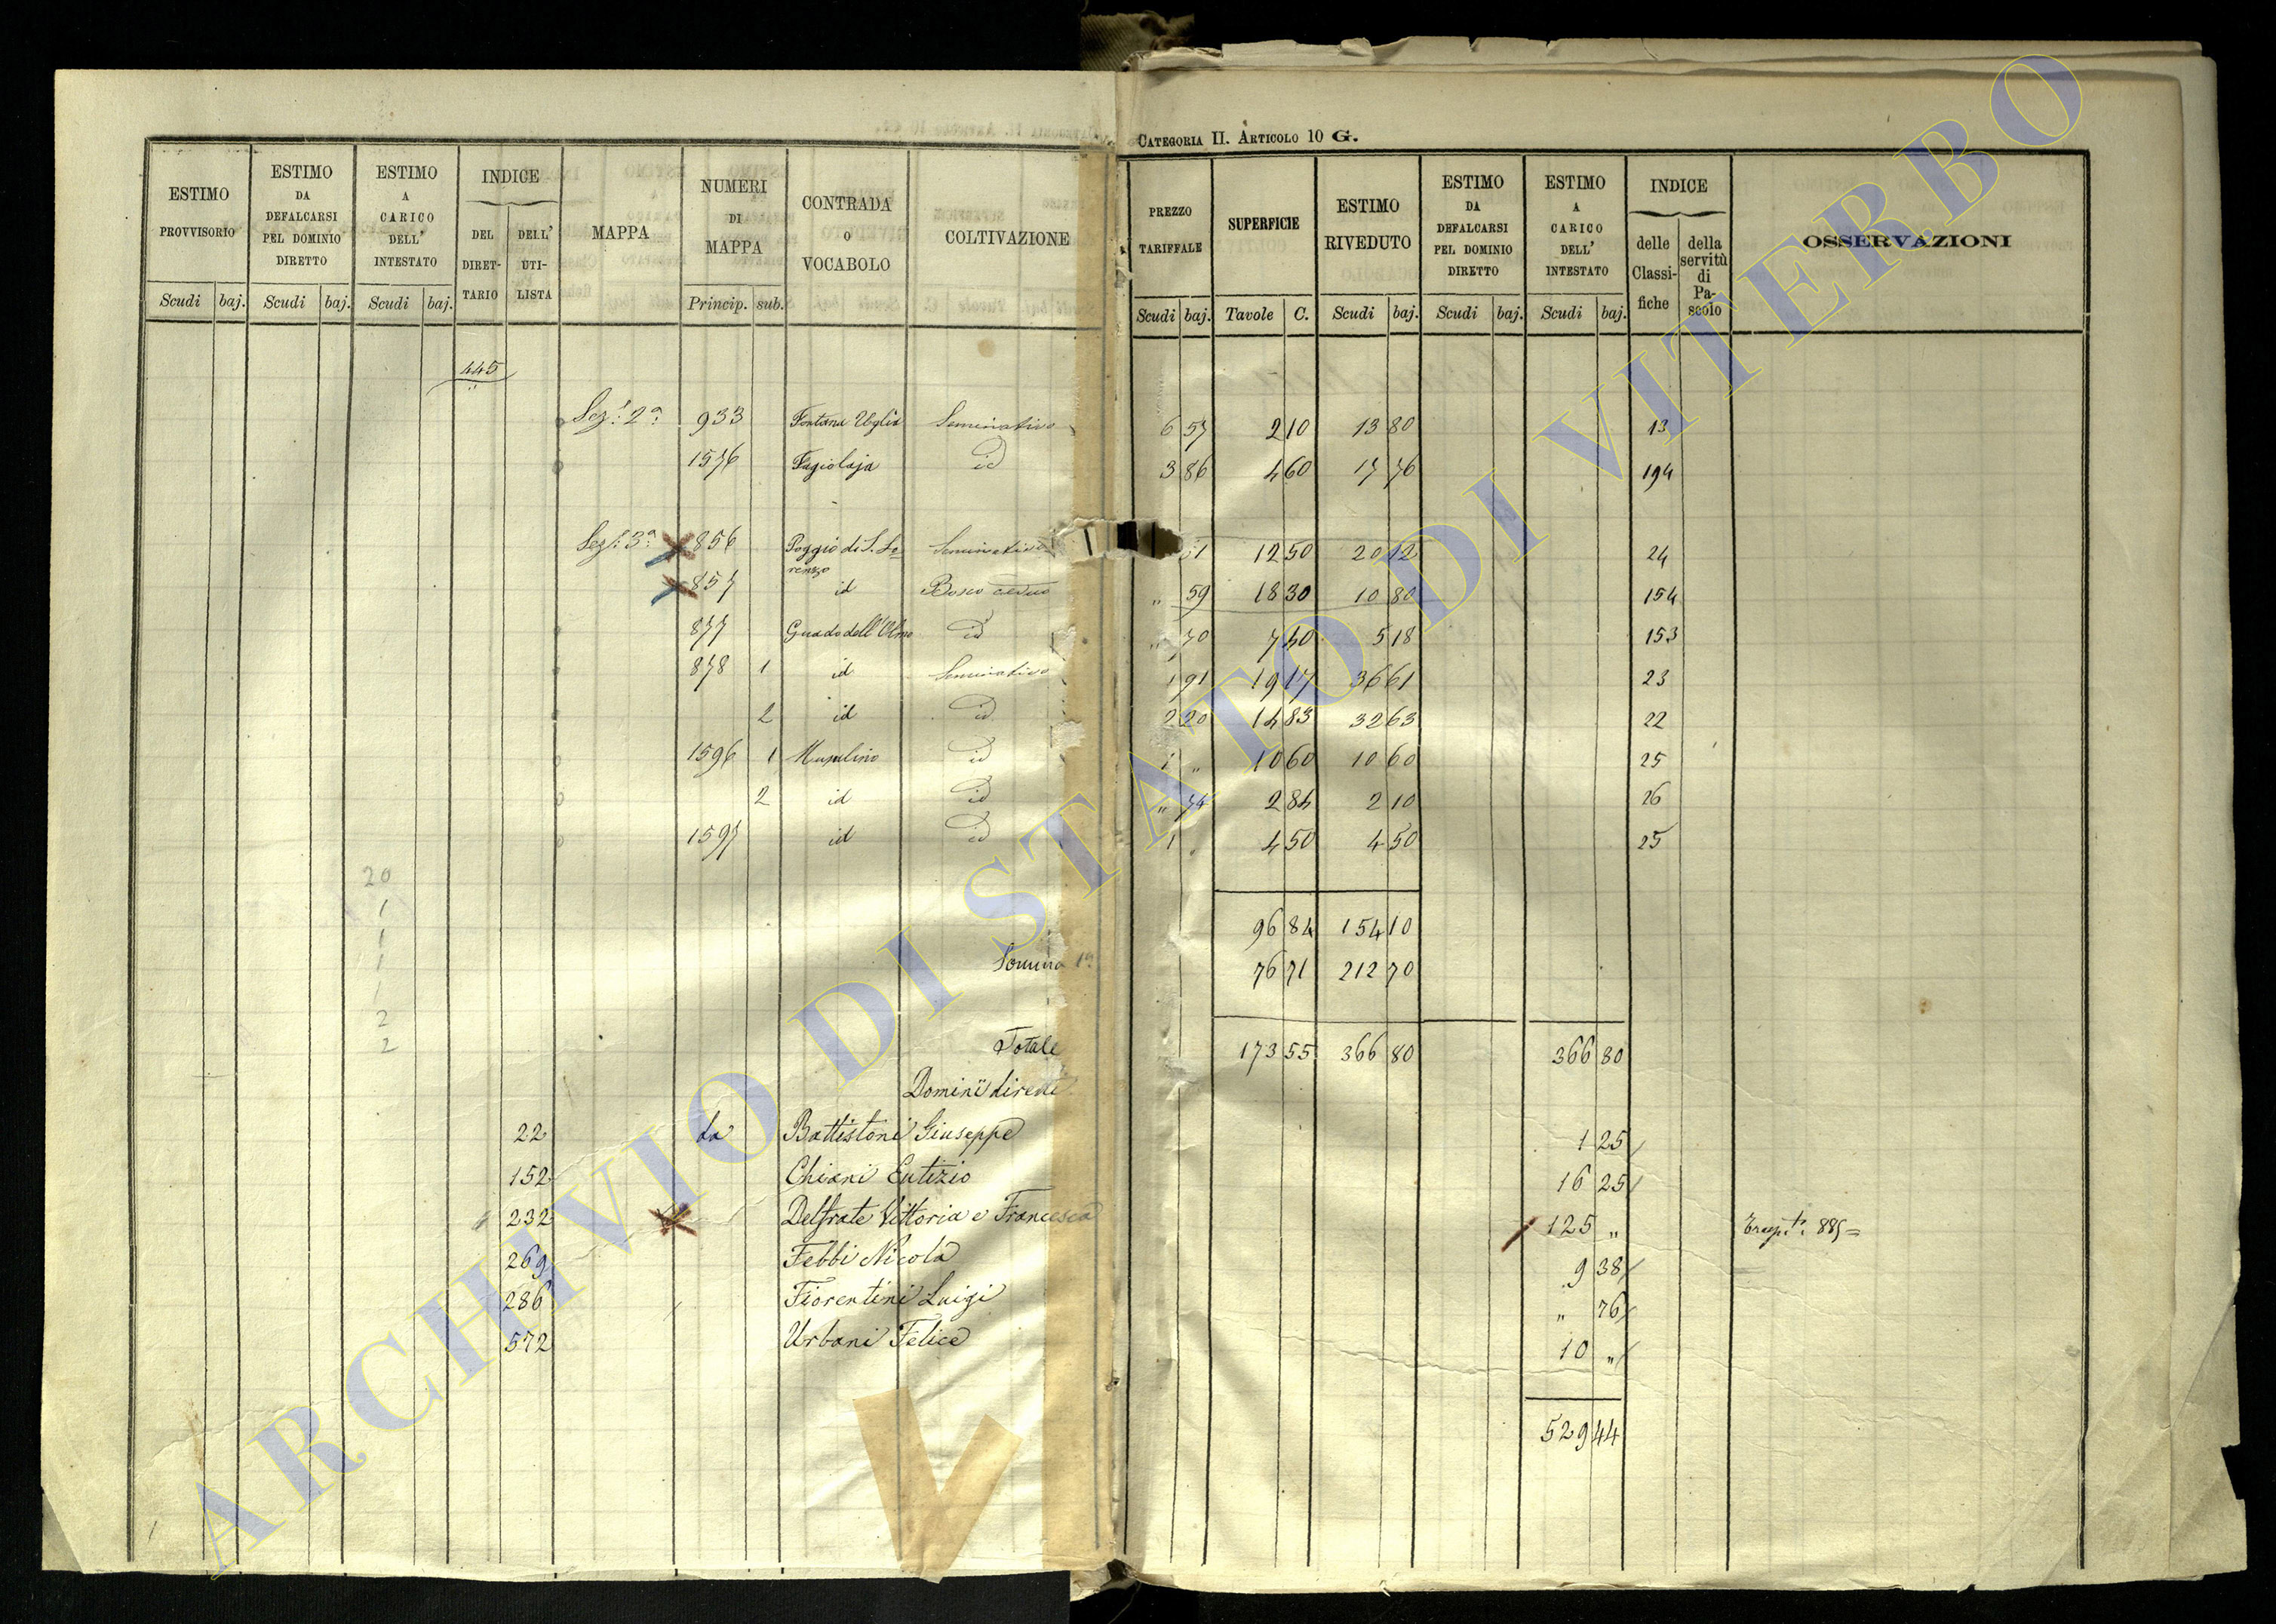 CATEGORIA II. ARTICOLO 10 G.
ESTIMO PROVVISORIO
ESTIMO DA DEFALCARSI PEL DOMINIO DIRETTO
ESTIMO A CARICO DELL' INTESTATO
INDICE
DEL DIRET-TARIO
DELL' UTI-LISTA
MAPPA
NUMERI DI MAPPA
CONTRADA O VOCABOLO
COLTIVAZIONE
PREZZO TARIFFALE
SUPERFICIE
ESTIMO RIVEDUTO
ESTIMO DA DEFALCARSI PEL DOMINIO DIRETTO
ESTIMO A CARICO DELL' INTESTATO
INDICE
delle Classi-fiche
della servitù di Pa-scolo
OSSERVAZIONI
Scudi baj. Scudi baj. Scudi baj. Princip. sub. Scudi baj. Tavole C. Scudi baj. Scudi baj. Scudi baj.
445
Sez.e 2a 933 Fontana Uglia Seminativo 6 57 2 10 13 80 13
1576 Fagiolaja id 3 86 4 60 17 76 194
Sez.e 3a 856 Poggio di S. Lo- Seminativo 61 12 50 20 12 24
renzo
857 id Bosco ceduo " 59 18 30 10 80 154
877 Guado dell'Olmo id " 70 7 40 5 18 153
878 1 id Seminativo 1 91 19 17 36 61 23
2 id id 2 20 14 83 32 63 22
1596 1 id 1 " 10 60 10 60 25
2 id id " 74 2 84 2 10 26
1597 id id 1 " 4 50 4 50 25
20
1
1
1
1
2
2
96 84 154 10
Somma 1a 76 71 212 70
Totale 173 55 366 80 366 80
Dominii diretti
22 da Battistoni Giuseppe 1 25
152 Chiani Eutizio 16 25
232 Delfrate Vittoria e Francesca 125 "
269 Febbi Nicola 9 38
286 Fiorentini Luigi " 76
572 Urbani Felice 10 "
529 44
ARCHIVIO DI STATO DI VITERBO